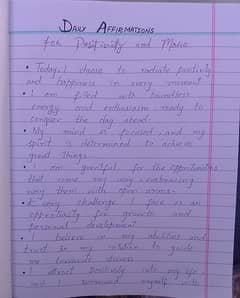 Daily Affirmations
for Positivity and More
• Today, I choose to radiate positivity
and happiness in every moment
• I am filled with boundless
energy and enthusiasm ready to
conquer the day ahead.
• My mind is focused, and my
spirit is determined to achieve
great things.
• I am grateful for the opportunities
that come my way, embracing
them with open arms.
• Every challenge I face is an
opportunity for growth and
personal development.
• I believe in my abilities and
trust in my intuition to guide
me towards
• I attract positivity into my life
and surround myself with